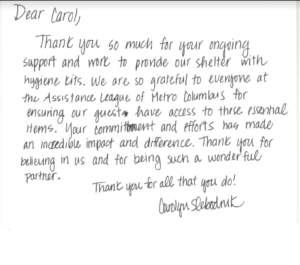 Dear Carol,
Thank you so much for your ongoing
support and work to provide our shelter with
hygiene kits. We are so grateful to everyone at
the Assistance League of Metro Columbus for
ensuring our guests have access to these essential
items. Your commitment and efforts has made
an incredible impact and difference. Thank you for
believing in us and for being such a wonderful
partner.
Thank you for all that you do!
Carolyn Slebodnik